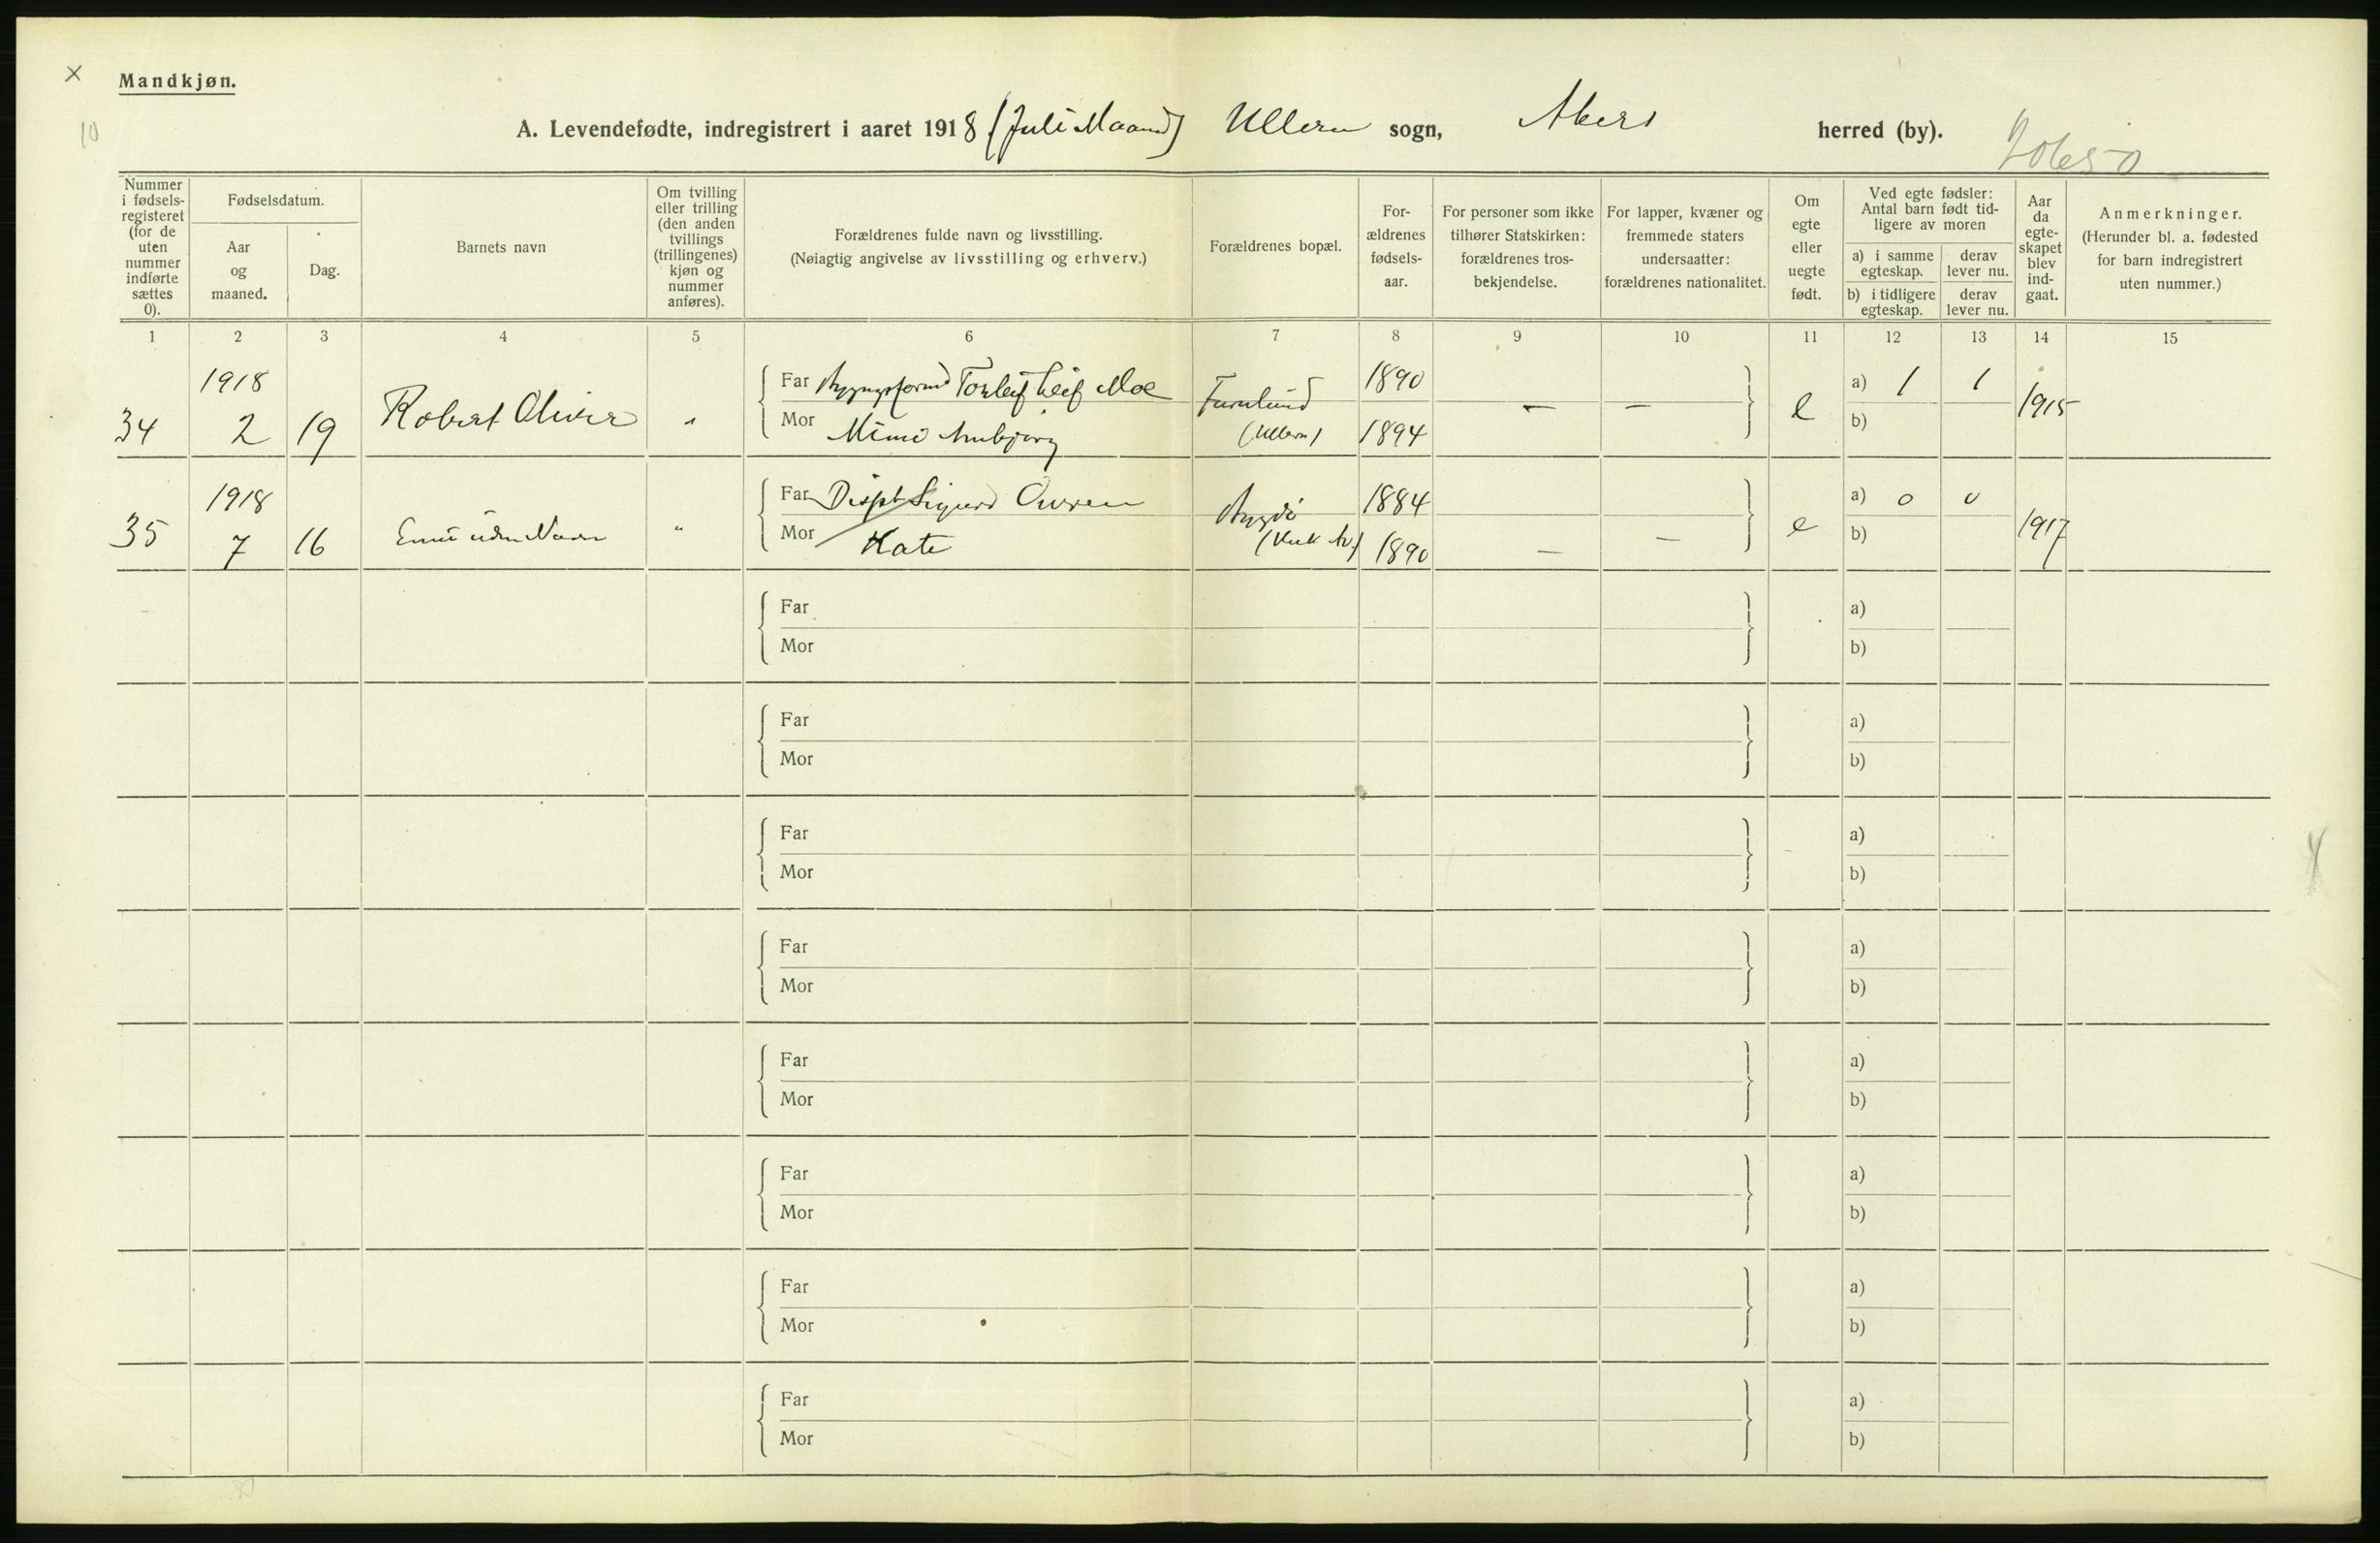 Mandkjøn.
10
A. Levendefødte, indregistrert i aaret 1918 (Juli Maaned) Ullern sogn, Akers herred (by).
Nummer i fødsels-registeret (for de uten nummer indførte sættes 0).
Fødselsdatum.
Aar og maaned.
Dag.
Barnets navn
Om tvilling eller trilling (den anden tvillings (trillingenes) kjøn og nummer anføres).
Forældrenes fulde navn og livsstilling.
(Nøiagtig angivelse av livsstilling og erhverv.)
Forældrenes bopæl.
For-ældrenes fødsels-aar.
For personer som ikke tilhører Statskirken: forældrenes tros-bekjendelse.
For lapper, kvæner og fremmede staters undersaatter: forældrenes nationalitet.
Om egte eller uegte født.
Ved egte fødsler: Antal barn født tid-ligere av moren
a) i samme egteskap.
derav lever nu.
b) i tidligere egteskap.
derav lever nu.
Aar da egte-skapet blev ind-gaat.
Anmerkninger.
(Herunder bl. a. fødested for barn indregistrert uten nummer.)
1 2 3 4 5 6 7 8 9 10 11 12 13 14 15
34 1918 2 19 Robert Oliver "
Far Torleif Leif Moe 1890
Mor Mimi 1894
Furulund (Ullern) — — e
a) 1 1
b)
1915
35 1918 7 16 "
Far Disp. Sigurd 1884
Mor Kate 1890
Bygdø — — e
a) 0 0
b)
1917
Far a)
Mor b)
Far a)
Mor b)
Far a)
Mor b)
Far a)
Mor b)
Far a)
Mor b)
Far a)
Mor b)
Far a)
Mor b)
Far a)
Mor b)